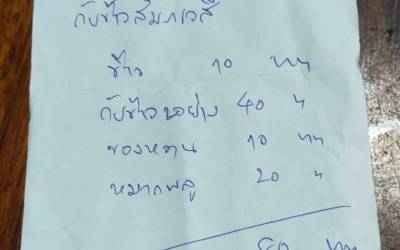 กับข้าวสัมภเวสี
ข้าว 10 บาท
กับข้าว 1 อย่าง 40 "
ของหวาน 10 บาท
หมากพลู 20 "
80 บาท